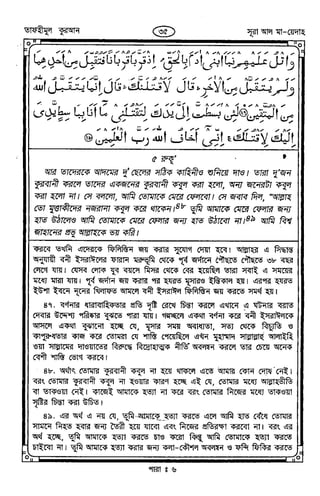 তাফহীমুল কুরআন
৩৫
সূরা আল মা-য়েদাহ
وَاتْلُ عَلَيْهِمْ نَبَاَ ابْنَىْ اٰدَمَ بِالْحَقِّ ۘ اِذْ قَرَّبَا قُرْبَانًا فَتُقُبِّلَ مِنْ اَحَدِهِمَا
وَلَمْ يُتَقَبَّلْ مِنَ الْاٰخَرِ ؕ قَالَ لَاَقْتُلَنَّكَ ؕ قَالَ اِنَّمَا يَتَقَبَّلُ اللّٰهُ
مِنَ الْمُتَّقِيْنَ ۝ لَئِنْۢ بَسَطْتَّ اِلَىَّ يَدَكَ لِتَقْتُلَنِىْ مَاۤ اَنَا بِبَاسِطٍ يَّدِىَ
اِلَيْكَ لِاَقْتُلَكَ ۚ اِنِّىْۤ اَخَافُ اللّٰهَ رَبَّ الْعٰلَمِيْنَ ۝
৫ রুকূ'
আর তাদেরকে আদমের দু' ছেলের সঠিক কাহিনীও শুনিয়ে দাও। তারা দু'জন
কুরবানী করলে তাদের একজনের কুরবানী কবুল করা হলো, অন্য জনেরটা কবুল
করা হলো না। সে বললো, আমি তোমাকে মেরে ফেলবো। সে জবাব দিল, "আল্লাহ
তো মুত্তাকীদের নজরানা কবুল করে থাকেন।৪৮ তুমি আমাকে মেরে ফেলার জন্য
হাত উঠালেও আমি তোমাকে মেরে ফেলার জন্য হাত উঠাবো না।৪৯ আমি বিশ্ব
জাহানের প্রভু আল্লাহকে ভয় করি।
করবে তখনি এদেরকে ফিলিস্তিন জয় করার সুযোগ দেয়া হবে। আল্লাহর এ সিদ্ধান্ত
অনুযায়ী বনী ইসরাঈলের ফারান মরুভূমি থেকে পূর্ব জর্দানে পৌছতে পৌছতে ৩৮ বছর
লেগে যায়। যেসব লোক যুব বয়সে মিসর থেকে বের হয়েছিল তারা সবাই এ সময়ের
মধ্যে মারা যায়। পূর্ব জর্দান জয় করার পর হযরত মূসারও ইন্তিকাল হয়। এরপর হযরত
ইউশা ইবনে নূনের খিলাফত আমলে বনী ইসরাঈল ফিলিস্তিন জয় করতে সমর্থ হয়।
৪৭. বর্ণনার ধারাবাহিকতার প্রতি দৃষ্টি রেখে চিন্তা করলে এখানে এ ঘটনার বরাত
দেবার উদ্দেশ্য পরিষ্কার বুঝতে পারা যায়। গল্পচ্ছলে একথা বর্ণনা করে বনী ইসরাঈলকে
আসলে একথা বুঝানো হচ্ছে যে, মূসার সময় অবাধ্যতা, সত্য থেকে বিচ্যুতি ও
কাপুরুষতার কাজ করে তোমরা যে শাস্তি পেয়েছিলে এখন মুহাম্মাদ সাল্লাল্লাহু আলাইহি
ওয়া সাল্লামের দাওয়াতের বিরুদ্ধে বিদ্রোহাত্মক নীতি অবলম্বন করলে তার চেয়ে অনেক
বেশী শাস্তি ভোগ করবে।
৪৮. অর্থাৎ তোমার কুরবানী কবুল না হয়ে থাকলে এতে আমার কোন দোষ নেই।
বরং তোমার কুরবানী কবুল না হওয়ার কারণ হচ্ছে এই যে, তোমার মধ্যে আল্লাহভীতি
বা তাকওয়া নেই। কাজেই আমাকে হত্যা না করে বরং তোমার নিজের মধ্যে তাকওয়া
সৃষ্টির চিন্তা করা উচিত।
৪৯. এর অর্থ এ নয় যে, তুমি আমাকে হত্যা করতে এলে আমি হাত বেঁধে তোমার
সামনে নিহত হবার জন্য তৈরী হয়ে যাবো এবং নিজের প্রতিরক্ষা করবো না। বরং এর
অর্থ হচ্ছে, তুমি আমাকে হত্যা করতে চাও করো কিন্তু আমি তোমাকে হত্যা করতে
চাইবো না। তুমি আমাকে হত্যা করার জন্য কলা-কৌশল অবলম্বন ও ফন্দি ফিকির করতে
পারা : ৬